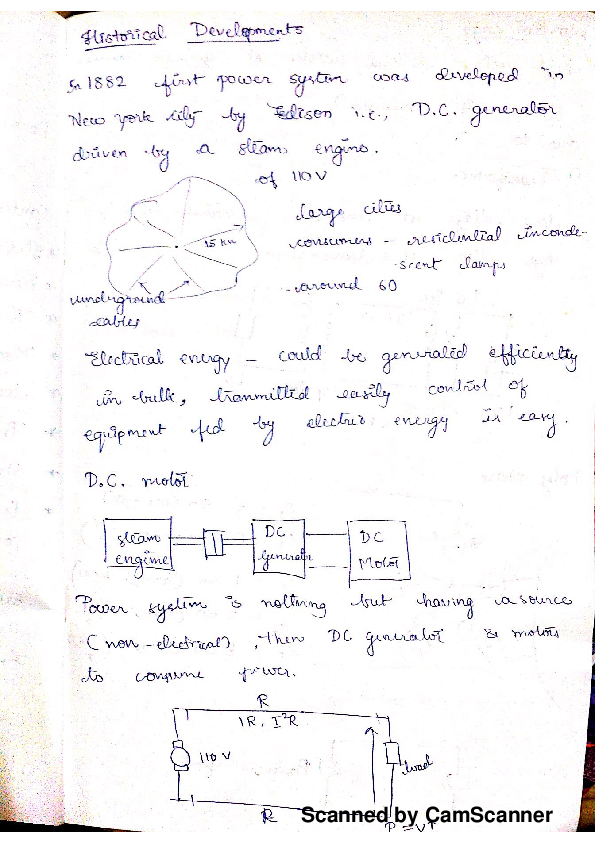 Historical Developments
In 1882 first power system was developed in
New york city by Edison i.e., D.C. generator
driven by a steam engine.
of 110 V
large cities
15 km
consumers - residential incande-
scent lamps
around 60
underground
cables
Electrical energy - could be generated efficiently
in bulk, transmitted easily control of
equipment fed by electric energy is easy.
D.C. motor
steam
engine
DC
Generator
DC
Motor
Power system is nothing but having a source
(non-electrical), then DC generator & motors
to consume power.
R
IR, I²R
110 V
load
R
P = VI
Scanned by CamScanner